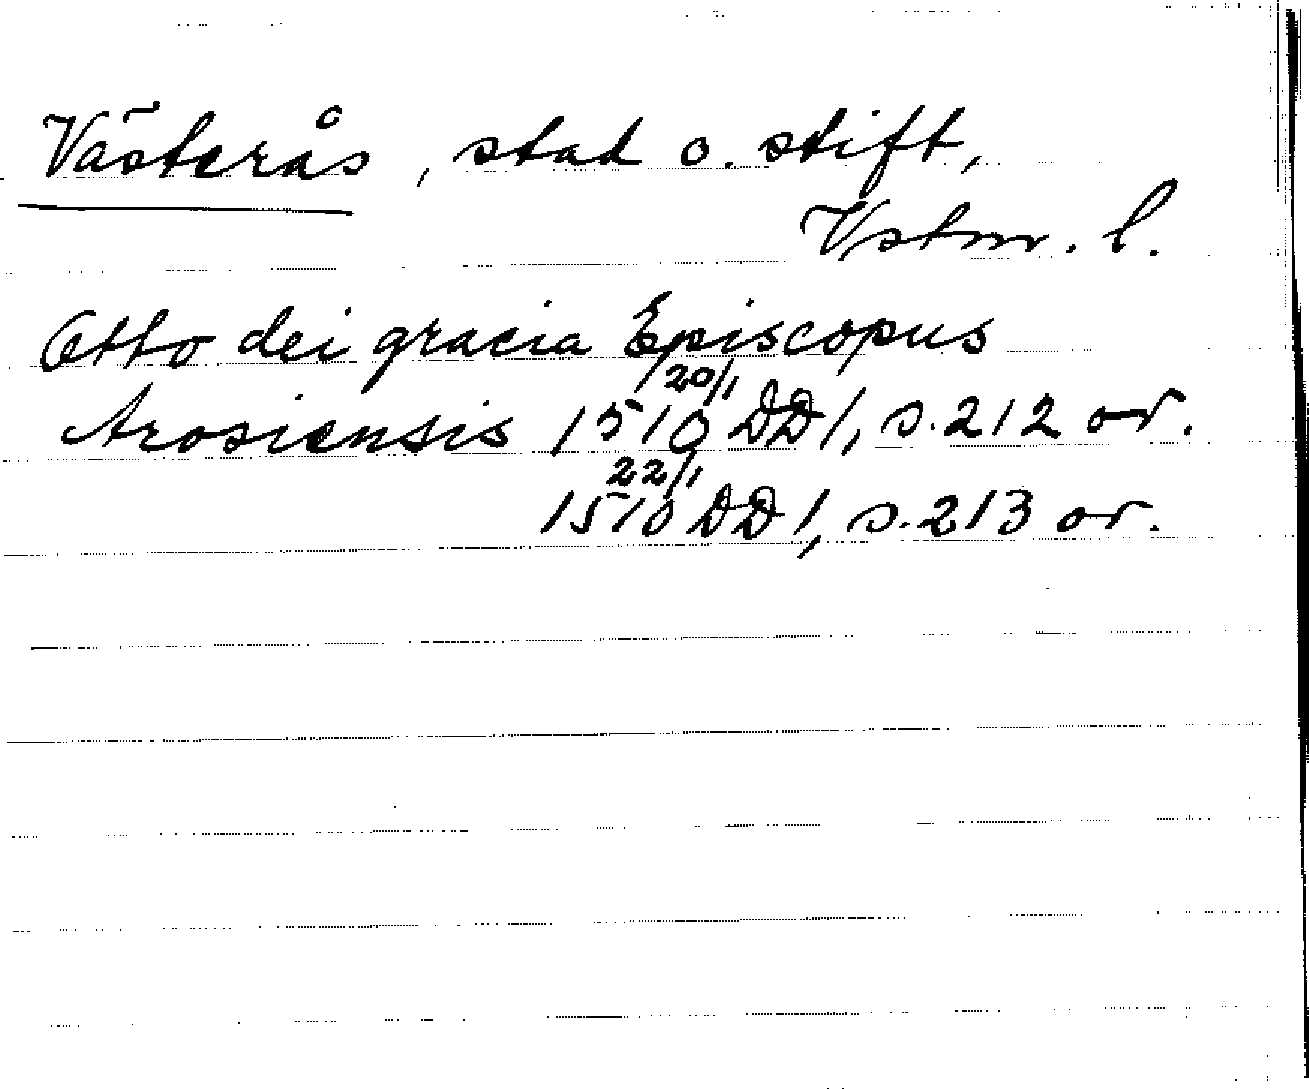 Västerås, stad o. stift,
Vstm. l.
Otto dei gracia Episcopus
Arosiensis 20/1 1510 DD 1, s. 212 or.
22/1 1510 DD 1, s. 213 or.